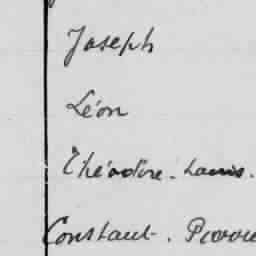 Joseph
Léon
Théodore - Louis.
Constant. Pierre